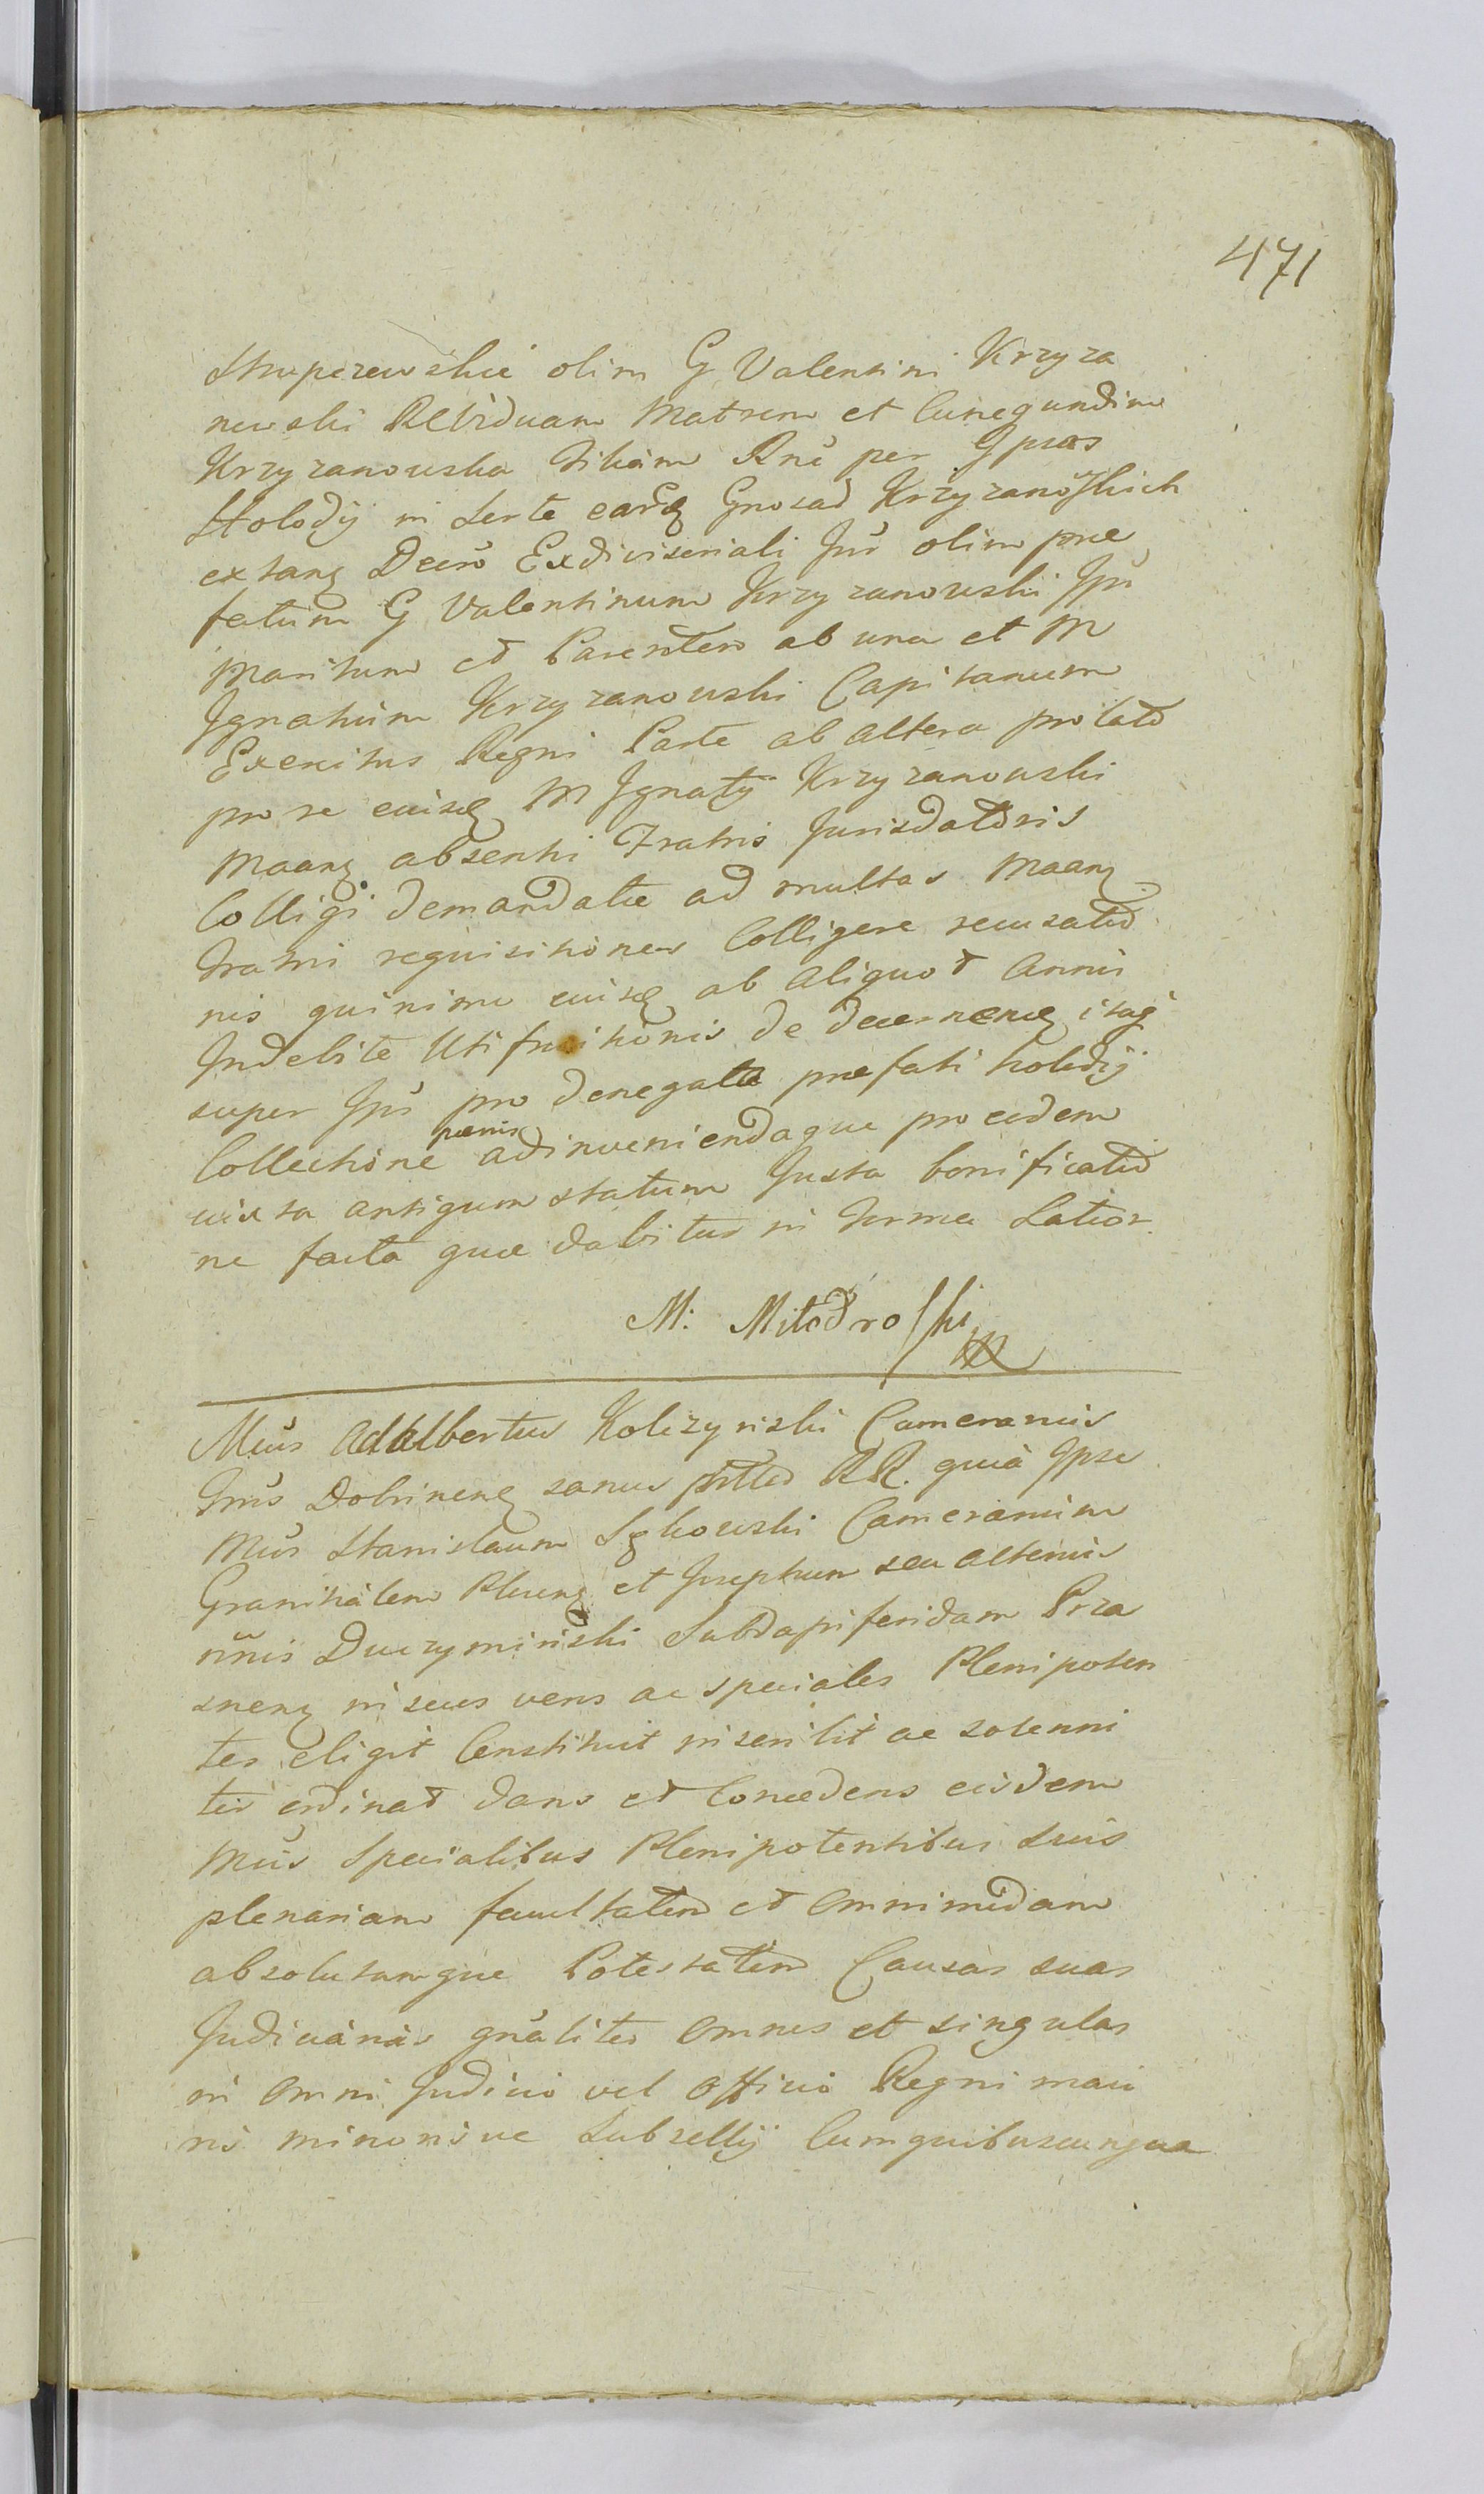 471
Strupczewskie olim G Valentini Krzyza
nowski Relviduam Matrem et Cunegundim
Krzyzanowska Filiam Rnê per Ipsas
Holodij in Sorte earq Gnosad Krzyzanoskich
extanq Decro Exdivisoriali Jnr olim prae
fatum G Valentinum Krzyzanowski Ipr
Maritum et Parentem ab una et M
Ignatium Krzyzanowski Capitaneum
Exercitus Regni Parte ab altera prolato
pro re eiusq M Ignatij Krzyzanowski
Maanq absenti Fratris Jurisdatoris
Colligi demandatae ad multas Maanq
Fratri requisitiones Colligere recusatio
nis quinimo eiusq ab aliquot Annis
Indebite Utifruitionis de decernenq itaq
super Ipis pro denegata praefati holodij
Collectione paenis adinveniendaque pro eodem
iuxta antiquum statum Justa bonificatio
ne facta quae dabitur in Forma Latior
M: Mitodroski
Mûs Adalbertus Kolczynski Camerarius
Trrûs Dobrinenq sanus RR. quia Ipse
Mûs Stanislaum Camerarium
Granitialem Plocenq et Josephum seu alterius
nn̄is Duczyminski Subdapiferidam Prza
snenq in suos veros ac speciales Plenipoten
tes eligit Constituit inscribit ac solenni
ter ordinat dans et Concedens eisdem
Mûs Specialibus Plenipotentibus Suis
plenariam facultatem et Omnimodam
absolutamque Potestatem Causas suas
Judiciarias gnâliter Omnes et singulas
in Omni Judicio vel Officio Regni maio
ris minorisve Subsellij Cumquibuscunque